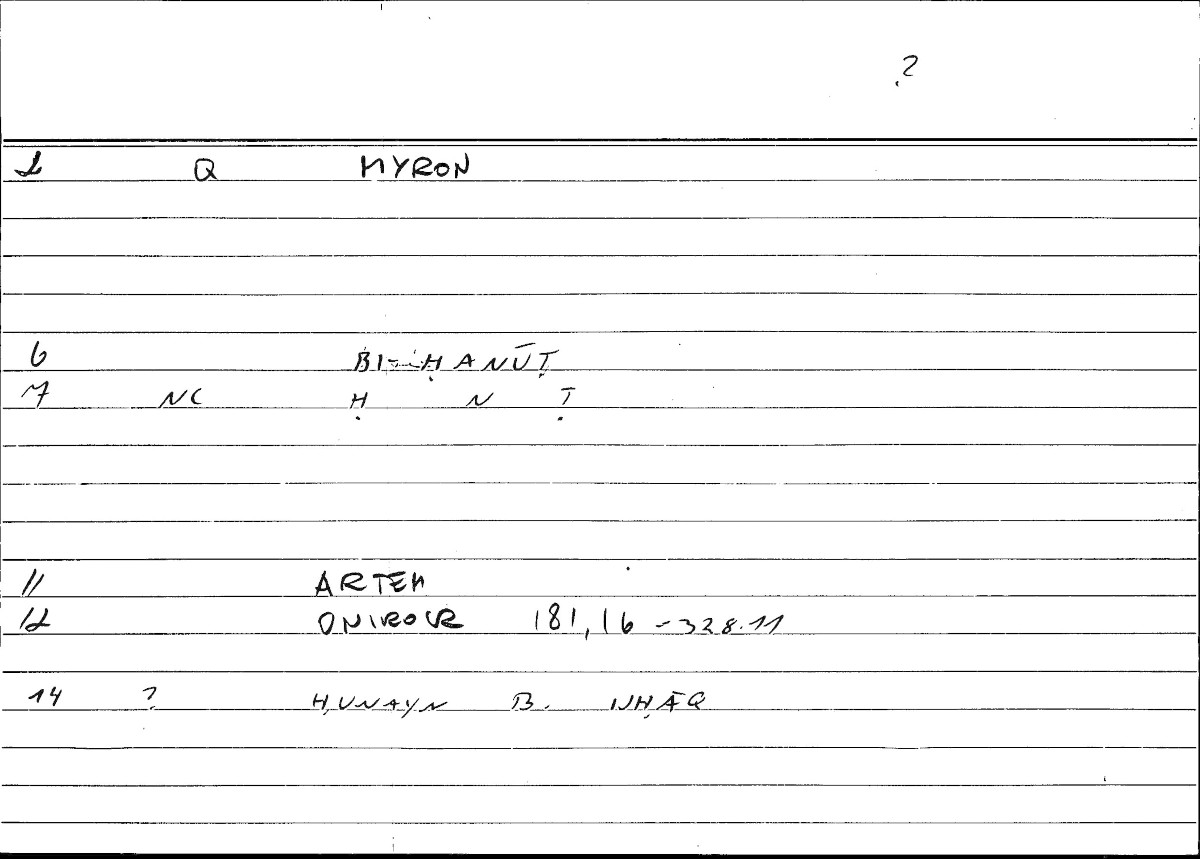 ?
1 Q MYRON
6 BI-ḤANŪṬ
7 NC Ḥ N Ṭ
11 ARTEM
12 ONIROCR 181,16-328.11
14 ? ḤUNAYN B. ISḤĀQ